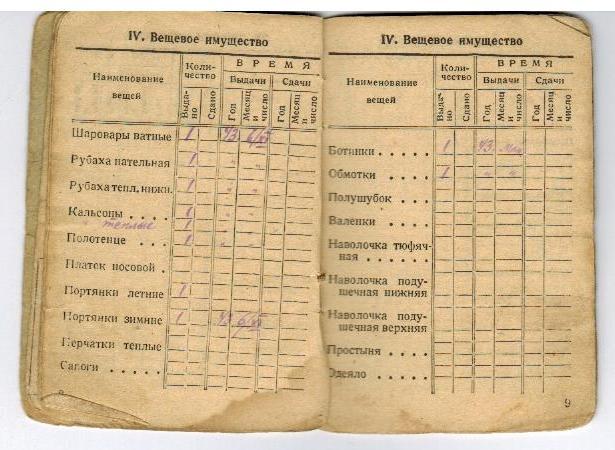 IV. Вещевое имущество
Наименование вещей
Количество
ВРЕМЯ
Выдачи
Сдачи
Выдано
Сдано
Год
Месяц и число
Год
Месяц и число
Шаровары ватные 1 43
Рубаха нательная 1 " "
Рубаха тепл. нижн. 1 " "
Кальсоны . . . . 1 " "
" теплые 1
Полотенце . . . 1 " "
Платок носовой .
Портянки летние 1
Портянки зимние 1 43
Перчатки теплые
Сапоги . . . . .
IV. Вещевое имущество
Наименование вещей
Количество
ВРЕМЯ
Выдачи
Сдачи
Выдано
Сдано
Год
Месяц и число
Год
Месяц и число
Ботинки . . . . 1 43 май
Обмотки . . . . 1 " "
Полушубок . . .
Валенки . . . .
Наволочка тюфяч-
ная . . . . . .
Наволочка поду-
шечная нижняя
Наволочка поду-
шечная верхняя
Простыня . . . .
Одеяло . . . . .
9